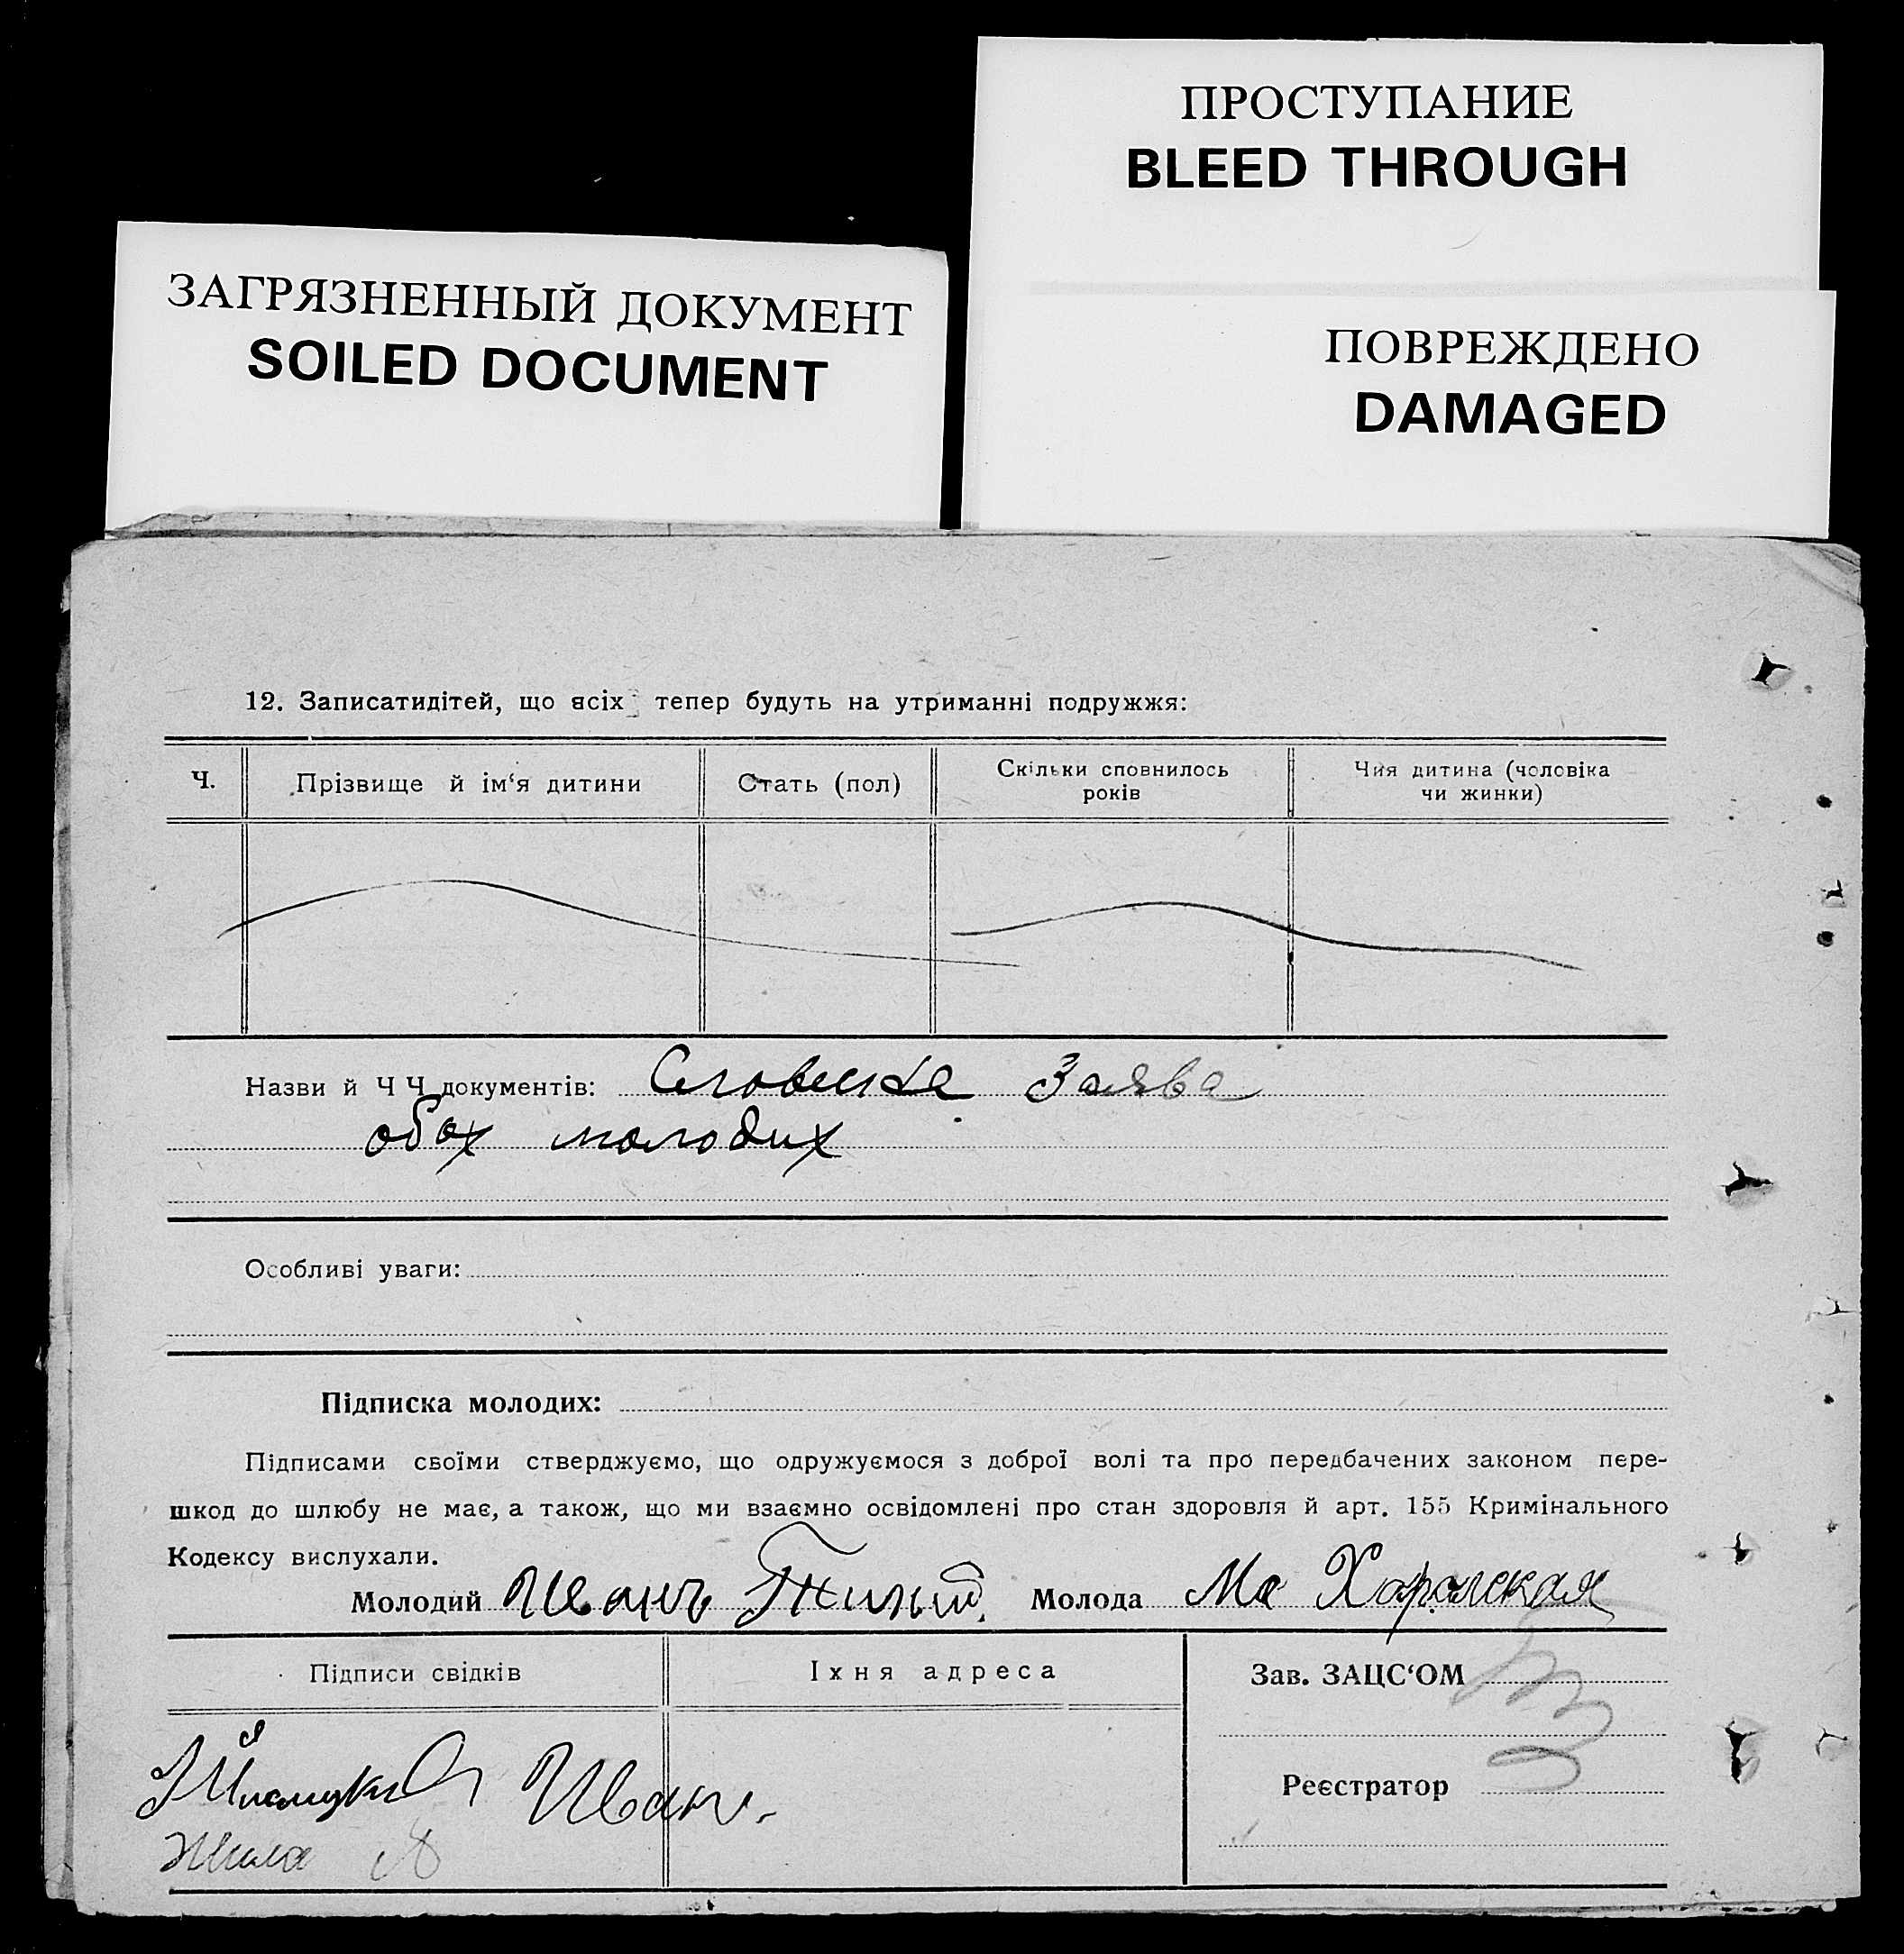 ПРОСТУПАНИЕ
BLEED THROUGH
ЗАГРЯЗНЕННЫЙ ДОКУМЕНТ
SOILED DOCUMENT
ПОВРЕЖДЕНО
DAMAGED
12. Записатидітей, що всіх тепер будуть на утриманні подружжя:
Ч. Прізвище й ім‘я дитини Стать (пол) Скільки сповнилось років Чия дитина (чоловіка чи жинки)
Назви й Ч Ч документів: Словеска Заява
обох молодих
Особливі уваги:
Підписка молодих:
Підписами своїми стверджуємо, що одружуємося з доброї волі та про передбачених законом пере-
шкод до шлюбу не має, а також, що ми взаємно освідомлені про стан здоровля й арт. 155 Кримінального
Кодексу вислухали.
Молодий Иванъ Молода Ма
Підписи свідків Їхня адреса Зав. ЗАЦС‘ОМ
Реєстратор
Иван.